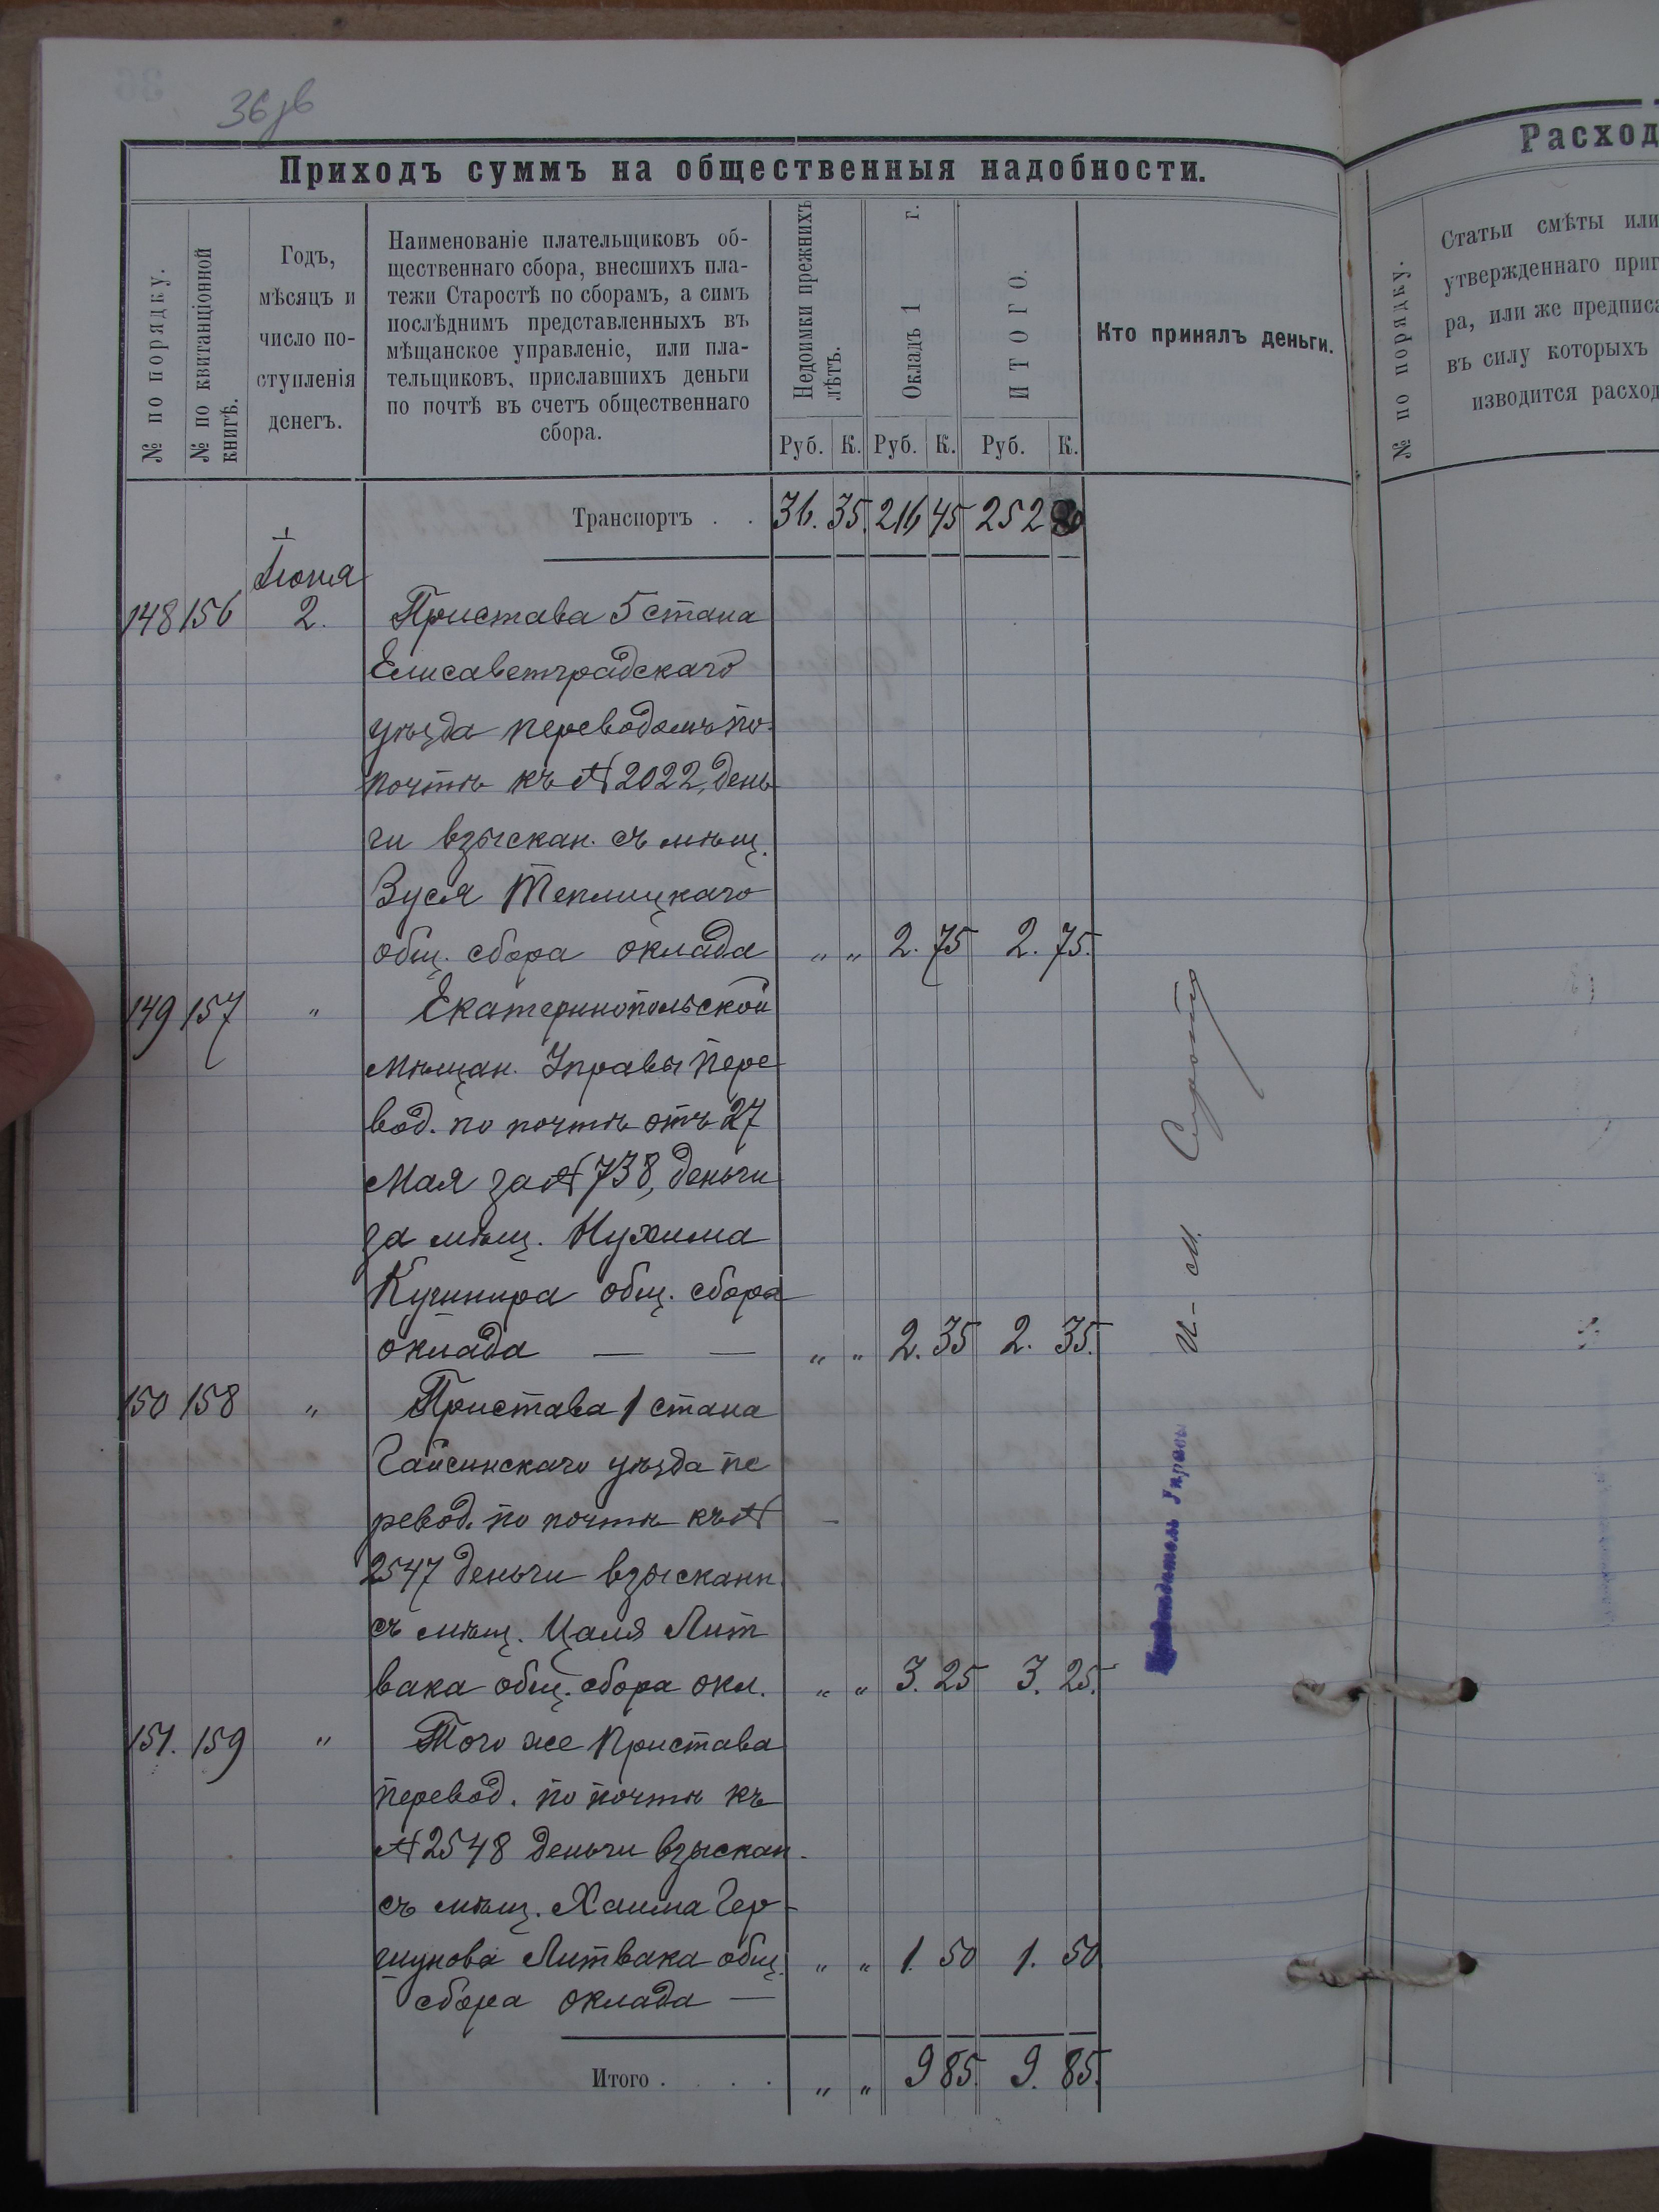 36 зв
Приходъ суммъ на общественныя надобности.
№ по порядку.
№ по квитанціонной
книгѣ.
Годъ,
мѣсяцъ и
число по-
ступленія
денегъ.
Наименованіе плательщиковъ об-
щественнаго сбора, внесшихъ пла-
тежи Старостѣ по сборамъ, а симъ
послѣднимъ представленныхъ въ
мѣщанское управленіе, или пла-
тельщиковъ, приславшихъ деньги
по почтѣ въ счетъ общественнаго
сбора.
Недоимки прежнихъ
лѣтъ.
Окладъ 1 г.
ИТОГО.
Руб. К. Руб. К. Руб. К.
Кто принялъ деньги.
Транспортъ . . 36. 35. 216 45 252 80
Іюня
148 156 2. Пристава 5 стана
Елисаветградскаго
уѣзда переводомъ по
почтѣ къ № 2022, день
ги взыскан. съ мѣщ.
Зуся Теплицкаго
общ. сбора оклада „ „ 2. 75 2. 75.
149 157 „ Екатеринопольской
мѣщан. Управы пере
вод. по почтѣ отъ 27
Мая за № 738, деньги
за мѣщ. Нухима
Кушнира общ. сбора
оклада — — „ „ 2. 35 2. 35.
150 158 „ Пристава 1 стана
Гайсинскаго уѣзда пе
ревод. по почтѣ къ №
2547 деньги взысканн.
съ мѣщ. Цаля Лит
вака общ. сбора окл. „ „ 3. 25 3. 25.
151. 159 „ Того же Пристава
перевод. по почтѣ къ
№ 2548 деньги взыскан.
съ мѣщ. Хаима Гер-
шунова Литвака общ. „ „ 1. 50 1. 50
сбора оклада —
Итого . . . . „ „ 9 85. 9. 85.
Предсѣдатель Управы
Расход
№ по порядку.
Статьи смѣты или
утвержденнаго приг
ра, или же предписа
въ силу которыхъ
изводится расход